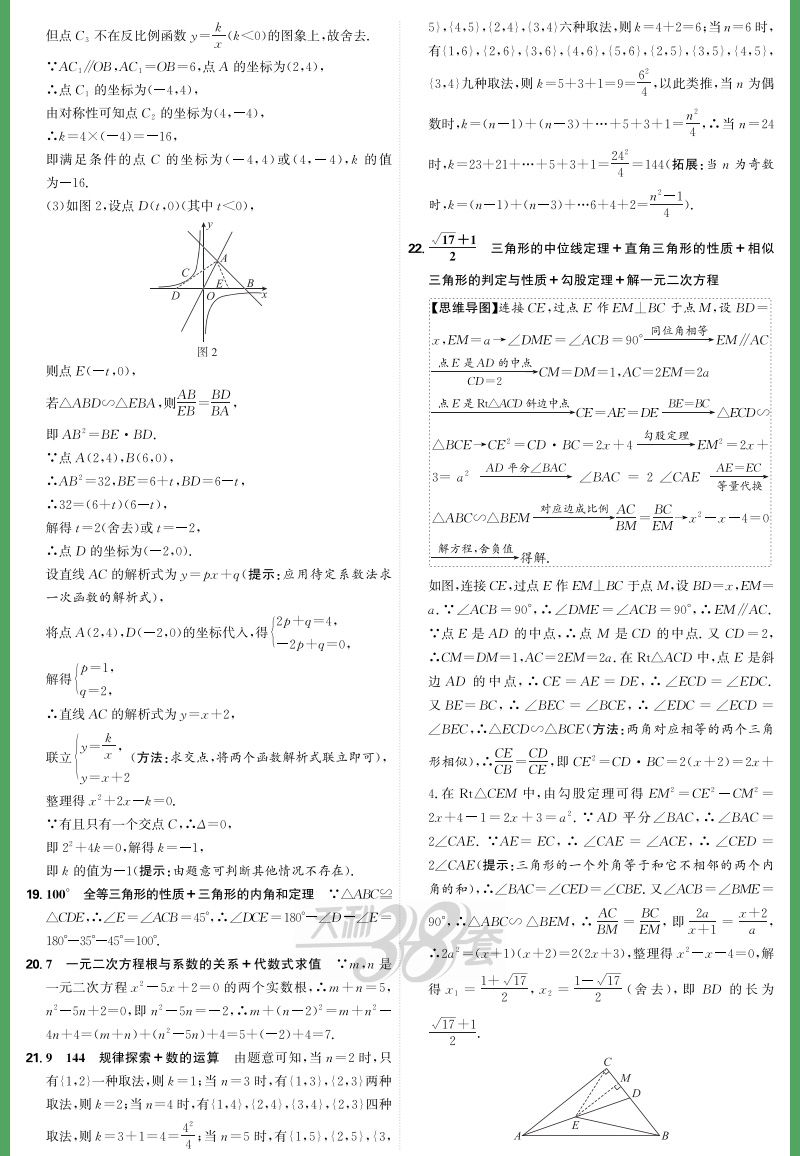 但点 C₃ 不在反比例函数 y=k/x(k<0)的图象上,故舍去.
∵AC₁∥OB,AC₁=OB=6,点 A 的坐标为(2,4),
∴点 C₁ 的坐标为(-4,4),
由对称性可知点 C₂ 的坐标为(4,-4),
∴k=4×(-4)=-16,
即满足条件的点 C 的坐标为(-4,4)或(4,-4),k 的值
为-16.
(3)如图 2,设点 D(t,0)(其中 t<0),
y
A
C
E B
D O x
图 2
则点 E(-t,0),
若△ABD∽△EBA,则AB/EB=BD/BA,
即 AB²=BE·BD.
∵点 A(2,4),B(6,0),
∴AB²=32,BE=6+t,BD=6-t,
∴32=(6+t)(6-t),
解得 t=2(舍去)或 t=-2,
∴点 D 的坐标为(-2,0).
设直线 AC 的解析式为 y=px+q(提示:应用待定系数法求
一次函数的解析式),
将点 A(2,4),D(-2,0)的坐标代入,得{2p+q=4,
-2p+q=0,
解得{p=1,
q=2,
∴直线 AC 的解析式为 y=x+2,
联立{y=k/x, (方法:求交点,将两个函数解析式联立即可),
y=x+2
整理得 x²+2x-k=0.
∵有且只有一个交点 C,∴Δ=0,
即 2²+4k=0,解得 k=-1,
即 k 的值为-1(提示:由题意可判断其他情况不存在).
19. 100° 全等三角形的性质+三角形的内角和定理 ∵△ABC≌
△CDE,∴∠E=∠ACB=45°,∴∠DCE=180°-∠D-∠E=
180°-35°-45°=100°.
20. 7 一元二次方程根与系数的关系+代数式求值 ∵m,n 是
一元二次方程 x²-5x+2=0 的两个实数根,∴m+n=5,
n²-5n+2=0,即 n²-5n=-2,∴m+(n-2)²=m+n²-
4n+4=(m+n)+(n²-5n)+4=5+(-2)+4=7.
21. 9 144 规律探索+数的运算 由题意可知,当 n=2 时,只
有{1,2}一种取法,则 k=1;当 n=3 时,有{1,3},{2,3}两种
取法,则 k=2;当 n=4 时,有{1,4},{2,4},{3,4},{2,3}四种
取法,则 k=3+1=4=4²/4;当 n=5 时,有{1,5},{2,5},{3,
5},{4,5},{2,4},{3,4}六种取法,则 k=4+2=6;当 n=6 时,
有{1,6},{2,6},{3,6},{4,6},{5,6},{2,5},{3,5},{4,5},
{3,4}九种取法,则 k=5+3+1=9=6²/4,以此类推,当 n 为偶
数时,k=(n-1)+(n-3)+…+5+3+1=n²/4,∴当 n=24
时,k=23+21+…+5+3+1=24²/4=144(拓展:当 n 为奇数
时,k=(n-1)+(n-3)+…6+4+2=(n²-1)/4).
22. (√17+1)/2 三角形的中位线定理+直角三角形的性质+相似
三角形的判定与性质+勾股定理+解一元二次方程
【思维导图】连接 CE,过点 E 作 EM⊥BC 于点 M,设 BD=
x,EM=a→∠DME=∠ACB=90° 同位角相等→EM∥AC
点 E 是 AD 的中点 CD=2→CM=DM=1,AC=2EM=2a
点 E 是 Rt△ACD 斜边中点→CE=AE=DE BE=BC→△ECD∽
△BCE→CE²=CD·BC=2x+4 勾股定理→EM²=2x+
3=a² AD 平分∠BAC→∠BAC=2∠CAE AE=EC 等量代换→
△ABC∽△BEM 对应边成比例→AC/BM=BC/EM→x²-x-4=0
解方程,舍负值→得解.
如图,连接 CE,过点 E 作 EM⊥BC 于点 M,设 BD=x,EM=
a.∵∠ACB=90°,∴∠DME=∠ACB=90°,∴EM∥AC.
∵点 E 是 AD 的中点,∴点 M 是 CD 的中点.又 CD=2,
∴CM=DM=1,AC=2EM=2a.在 Rt△ACD 中,点 E 是斜
边 AD 的中点,∴CE=AE=DE,∴∠ECD=∠EDC.
又 BE=BC,∴∠BEC=∠BCE,∴∠EDC=∠ECD=
∠BEC,∴△ECD∽△BCE(方法:两角对应相等的两个三角
形相似),∴CE/CB=CD/CE,即 CE²=CD·BC=2(x+2)=2x+
4.在 Rt△CEM 中,由勾股定理可得 EM²=CE²-CM²=
2x+4-1=2x+3=a².∵AD 平分∠BAC,∴∠BAC=
2∠CAE.∵AE=EC,∴∠CAE=∠ACE,∴∠CED=
2∠CAE(提示:三角形的一个外角等于和它不相邻的两个内
角的和),∴∠BAC=∠CED=∠CBE.又∠ACB=∠BME=
90°,∴△ABC∽△BEM,∴AC/BM=BC/EM,即 2a/(x+1)=(x+2)/a,
∴2a²=(x+1)(x+2)=2(2x+3),整理得 x²-x-4=0,解
得 x₁=(1+√17)/2,x₂=(1-√17)/2(舍去),即 BD 的长为
(√17+1)/2.
C
M
D
E
A B
天利38套